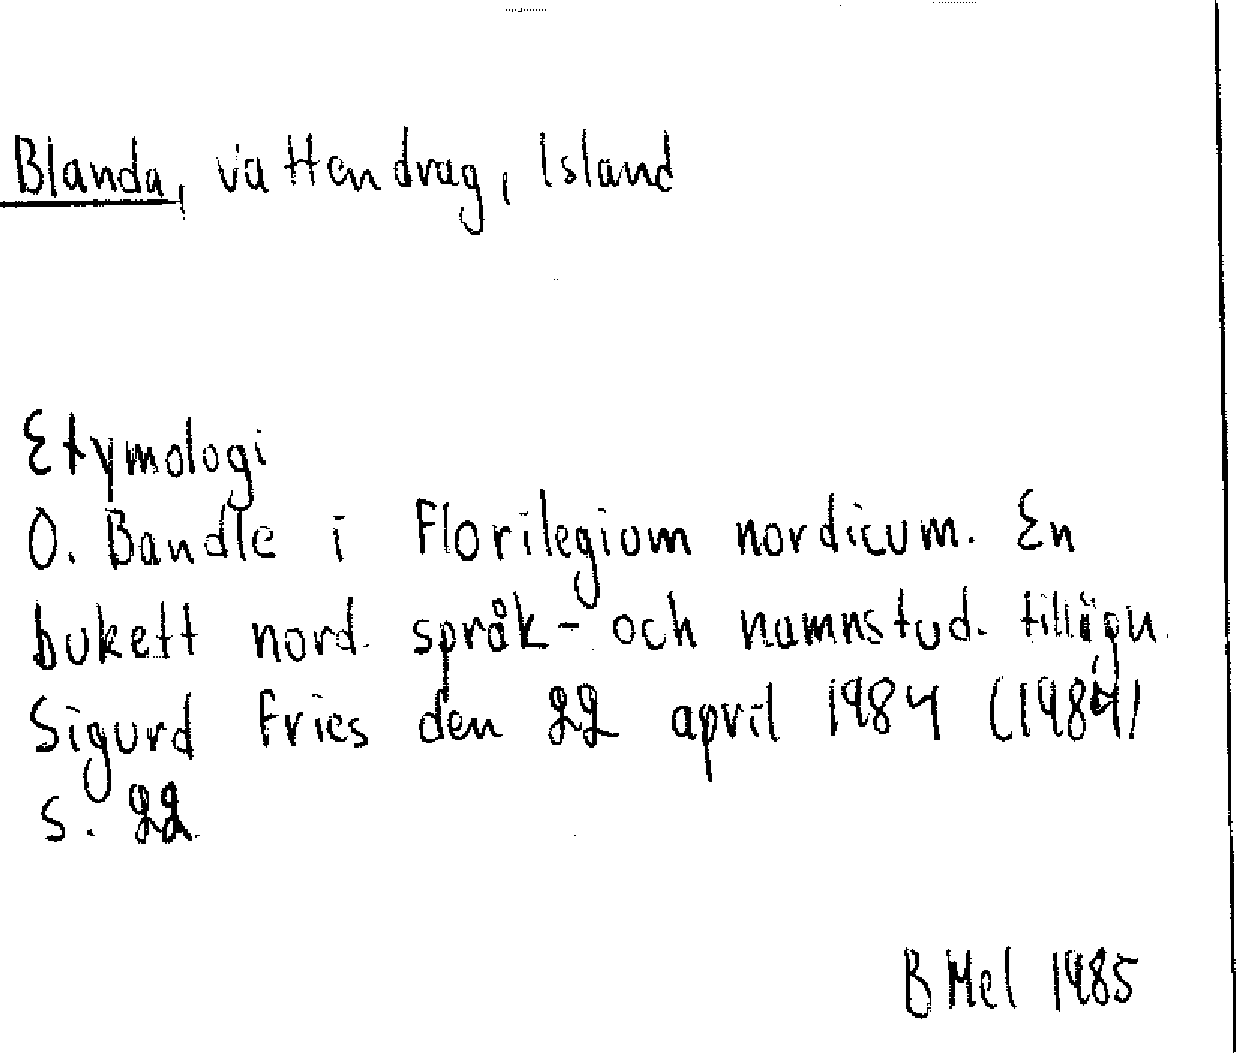 Blanda, vattendrag, Island
Etymologi
O. Bandle i Florilegium nordicum. En
bukett nord. språk- och namnstud. tillägn.
Sigurd Fries den 22 april 1984 (1984)
s. 22.
B Mel 1985